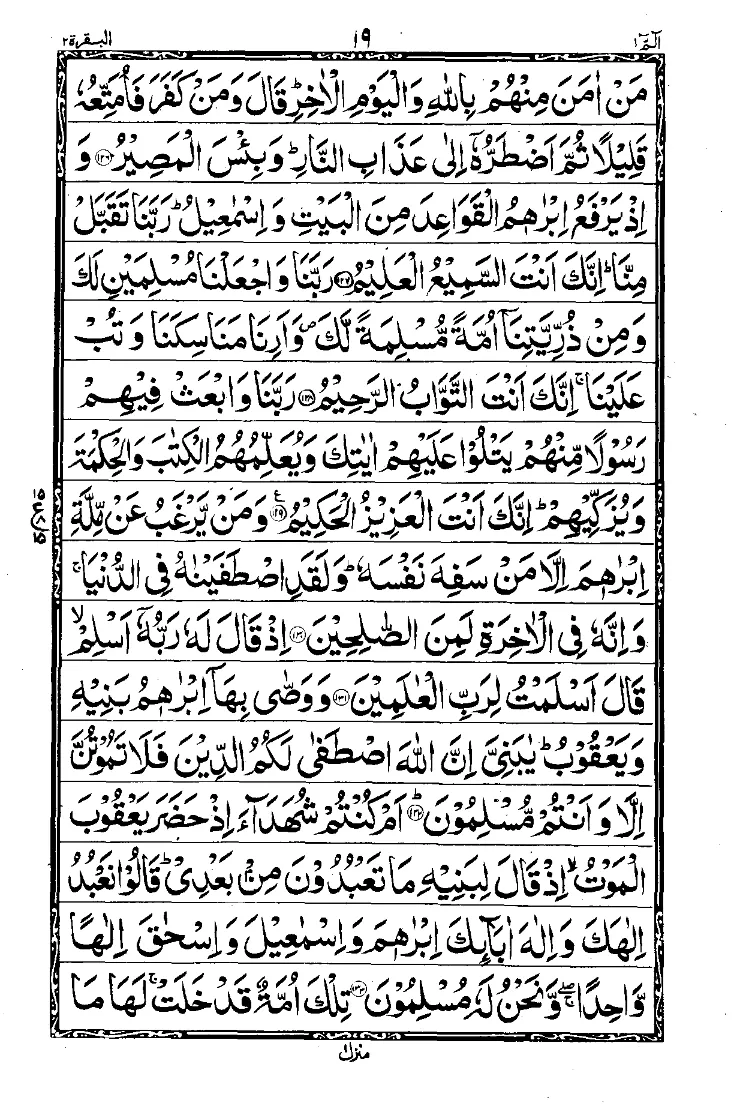 الٓمّٓ ١ ١٩ البقرة ٢
مَنْ اٰمَنَ مِنْهُمْ بِاللّٰهِ وَالْيَوْمِ الْاٰخِرِ ؕ قَالَ وَمَنْ كَفَرَ فَاُمَتِّعُهٗ
قَلِيْلًا ثُمَّ اَضْطَرُّهٗۤ اِلٰى عَذَابِ النَّارِ ؕ وَبِئْسَ الْمَصِيْرُ ﴿١٢٦﴾ وَ
اِذْ يَرْفَعُ اِبْرٰهِمُ الْقَوَاعِدَ مِنَ الْبَيْتِ وَ اِسْمٰعِيْلُ ؕ رَبَّنَا تَقَبَّلْ
مِنَّا ؕ اِنَّكَ اَنْتَ السَّمِيْعُ الْعَلِيْمُ ﴿١٢٧﴾ رَبَّنَا وَ اجْعَلْنَا مُسْلِمَيْنِ لَكَ
وَمِنْ ذُرِّيَّتِنَاۤ اُمَّةً مُّسْلِمَةً لَّكَ ۪ وَاَرِنَا مَنَاسِكَنَا وَ تُبْ
عَلَيْنَا ۚ اِنَّكَ اَنْتَ التَّوَّابُ الرَّحِيْمُ ﴿١٢٨﴾ رَبَّنَا وَ ابْعَثْ فِيْهِمْ
رَسُوْلًا مِّنْهُمْ يَتْلُوْا عَلَيْهِمْ اٰيٰتِكَ وَيُعَلِّمُهُمُ الْكِتٰبَ وَالْحِكْمَةَ
وَيُزَكِّيْهِمْ ؕ اِنَّكَ اَنْتَ الْعَزِيْزُ الْحَكِيْمُ ﴿١٢٩﴾ ع وَمَنْ يَّرْغَبُ عَنْ مِّلَّةِ
اِبْرٰهٖمَ اِلَّا مَنْ سَفِهَ نَفْسَهٗ ؕ وَلَقَدِ اصْطَفَيْنٰهُ فِى الدُّنْيَا ۚ
وَاِنَّهٗ فِى الْاٰخِرَةِ لَمِنَ الصّٰلِحِيْنَ ﴿١٣٠﴾ اِذْ قَالَ لَهٗ رَبُّهٗۤ اَسْلِمْ ۙ
قَالَ اَسْلَمْتُ لِرَبِّ الْعٰلَمِيْنَ ﴿١٣١﴾ وَ وَصّٰى بِهَاۤ اِبْرٰهٖمُ بَنِيْهِ
وَيَعْقُوْبُ ؕ يٰبَنِىَّ اِنَّ اللّٰهَ اصْطَفٰى لَكُمُ الدِّيْنَ فَلَا تَمُوْتُنَّ
اِلَّا وَ اَنْتُمْ مُّسْلِمُوْنَ ﴿١٣٢﴾ ؕ اَمْ كُنْتُمْ شُهَدَآءَ اِذْ حَضَرَ يَعْقُوْبَ
الْمَوْتُ ۙ اِذْ قَالَ لِبَنِيْهِ مَا تَعْبُدُوْنَ مِنْۢ بَعْدِىْ ؕ قَالُوْا نَعْبُدُ
اِلٰهَكَ وَ اِلٰهَ اٰبَآئِكَ اِبْرٰهٖمَ وَ اِسْمٰعِيْلَ وَ اِسْحٰقَ اِلٰهًا
وَّاحِدًا ۖۚ وَّنَحْنُ لَهٗ مُسْلِمُوْنَ ﴿١٣٣﴾ تِلْكَ اُمَّةٌ قَدْ خَلَتْ ۚ لَهَا مَا
منزل ١